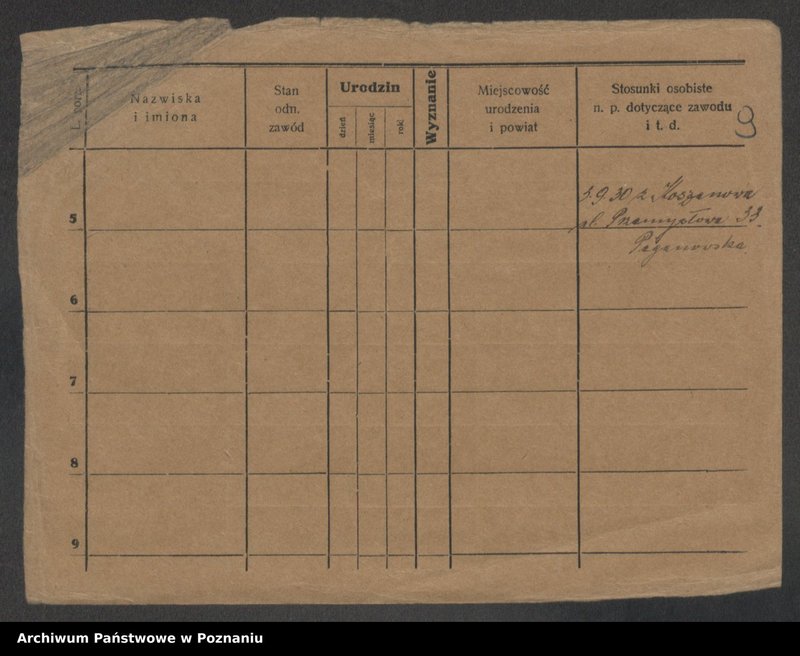 L. porz.
Nazwiska
i imiona
Stan
odn.
zawód
Urodzin
dzień
miesiąc
rok
Wyznanie
Miejscowość
urodzenia
i powiat
Stosunki osobiste
n. p. dotyczące zawodu
i t. d.
9
3.9.30 z
5
ul. Przemysłowa 33.
6
7
8
9
Archiwum Państwowe w Poznaniu